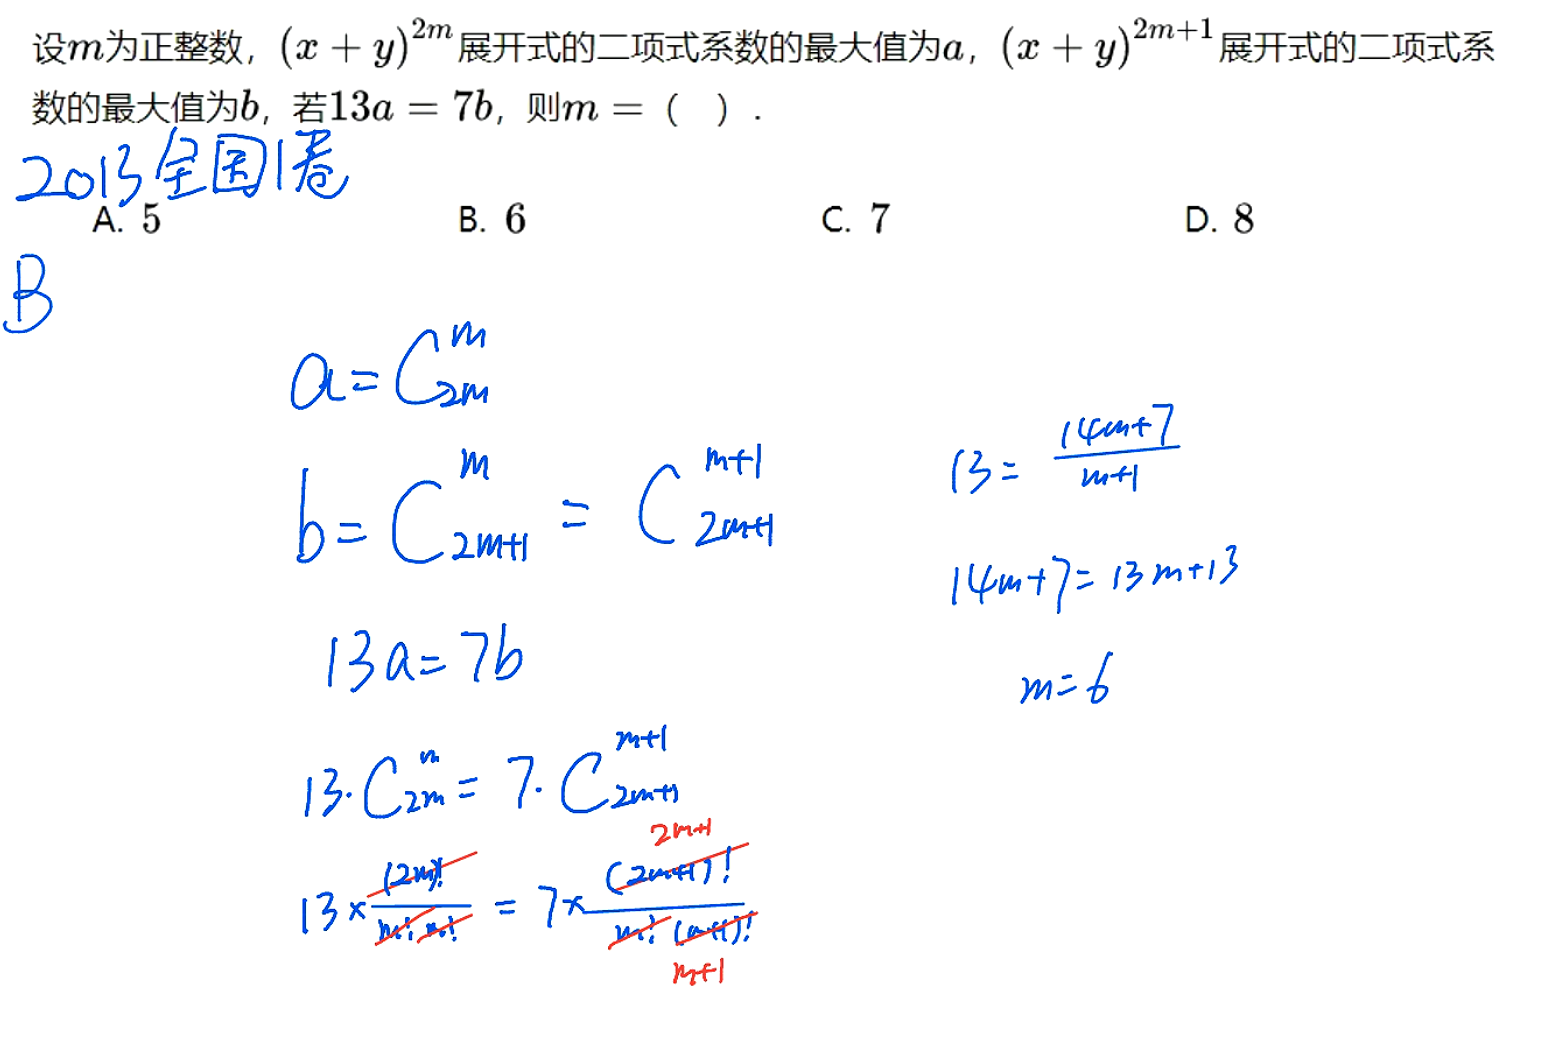 设m为正整数，(x + y)^{2m}展开式的二项式系数的最大值为a，(x + y)^{2m+1}展开式的二项式系
数的最大值为b，若13a = 7b，则m = （　）.
2013全国1卷
A. 5　B. 6　C. 7　D. 8
B
a = C_{2m}^{m}
b = C_{2m+1}^{m} = C_{2m+1}^{m+1}
13a = 7b
13·C_{2m}^{m} = 7·C_{2m+1}^{m+1}
2m+1
13 × \frac{(2m)!}{m! m!} = 7 × \frac{(2m+1)!}{m! (m+1)!}
m+1
13 = \frac{14m+7}{m+1}
14m+7 = 13m+13
m = 6